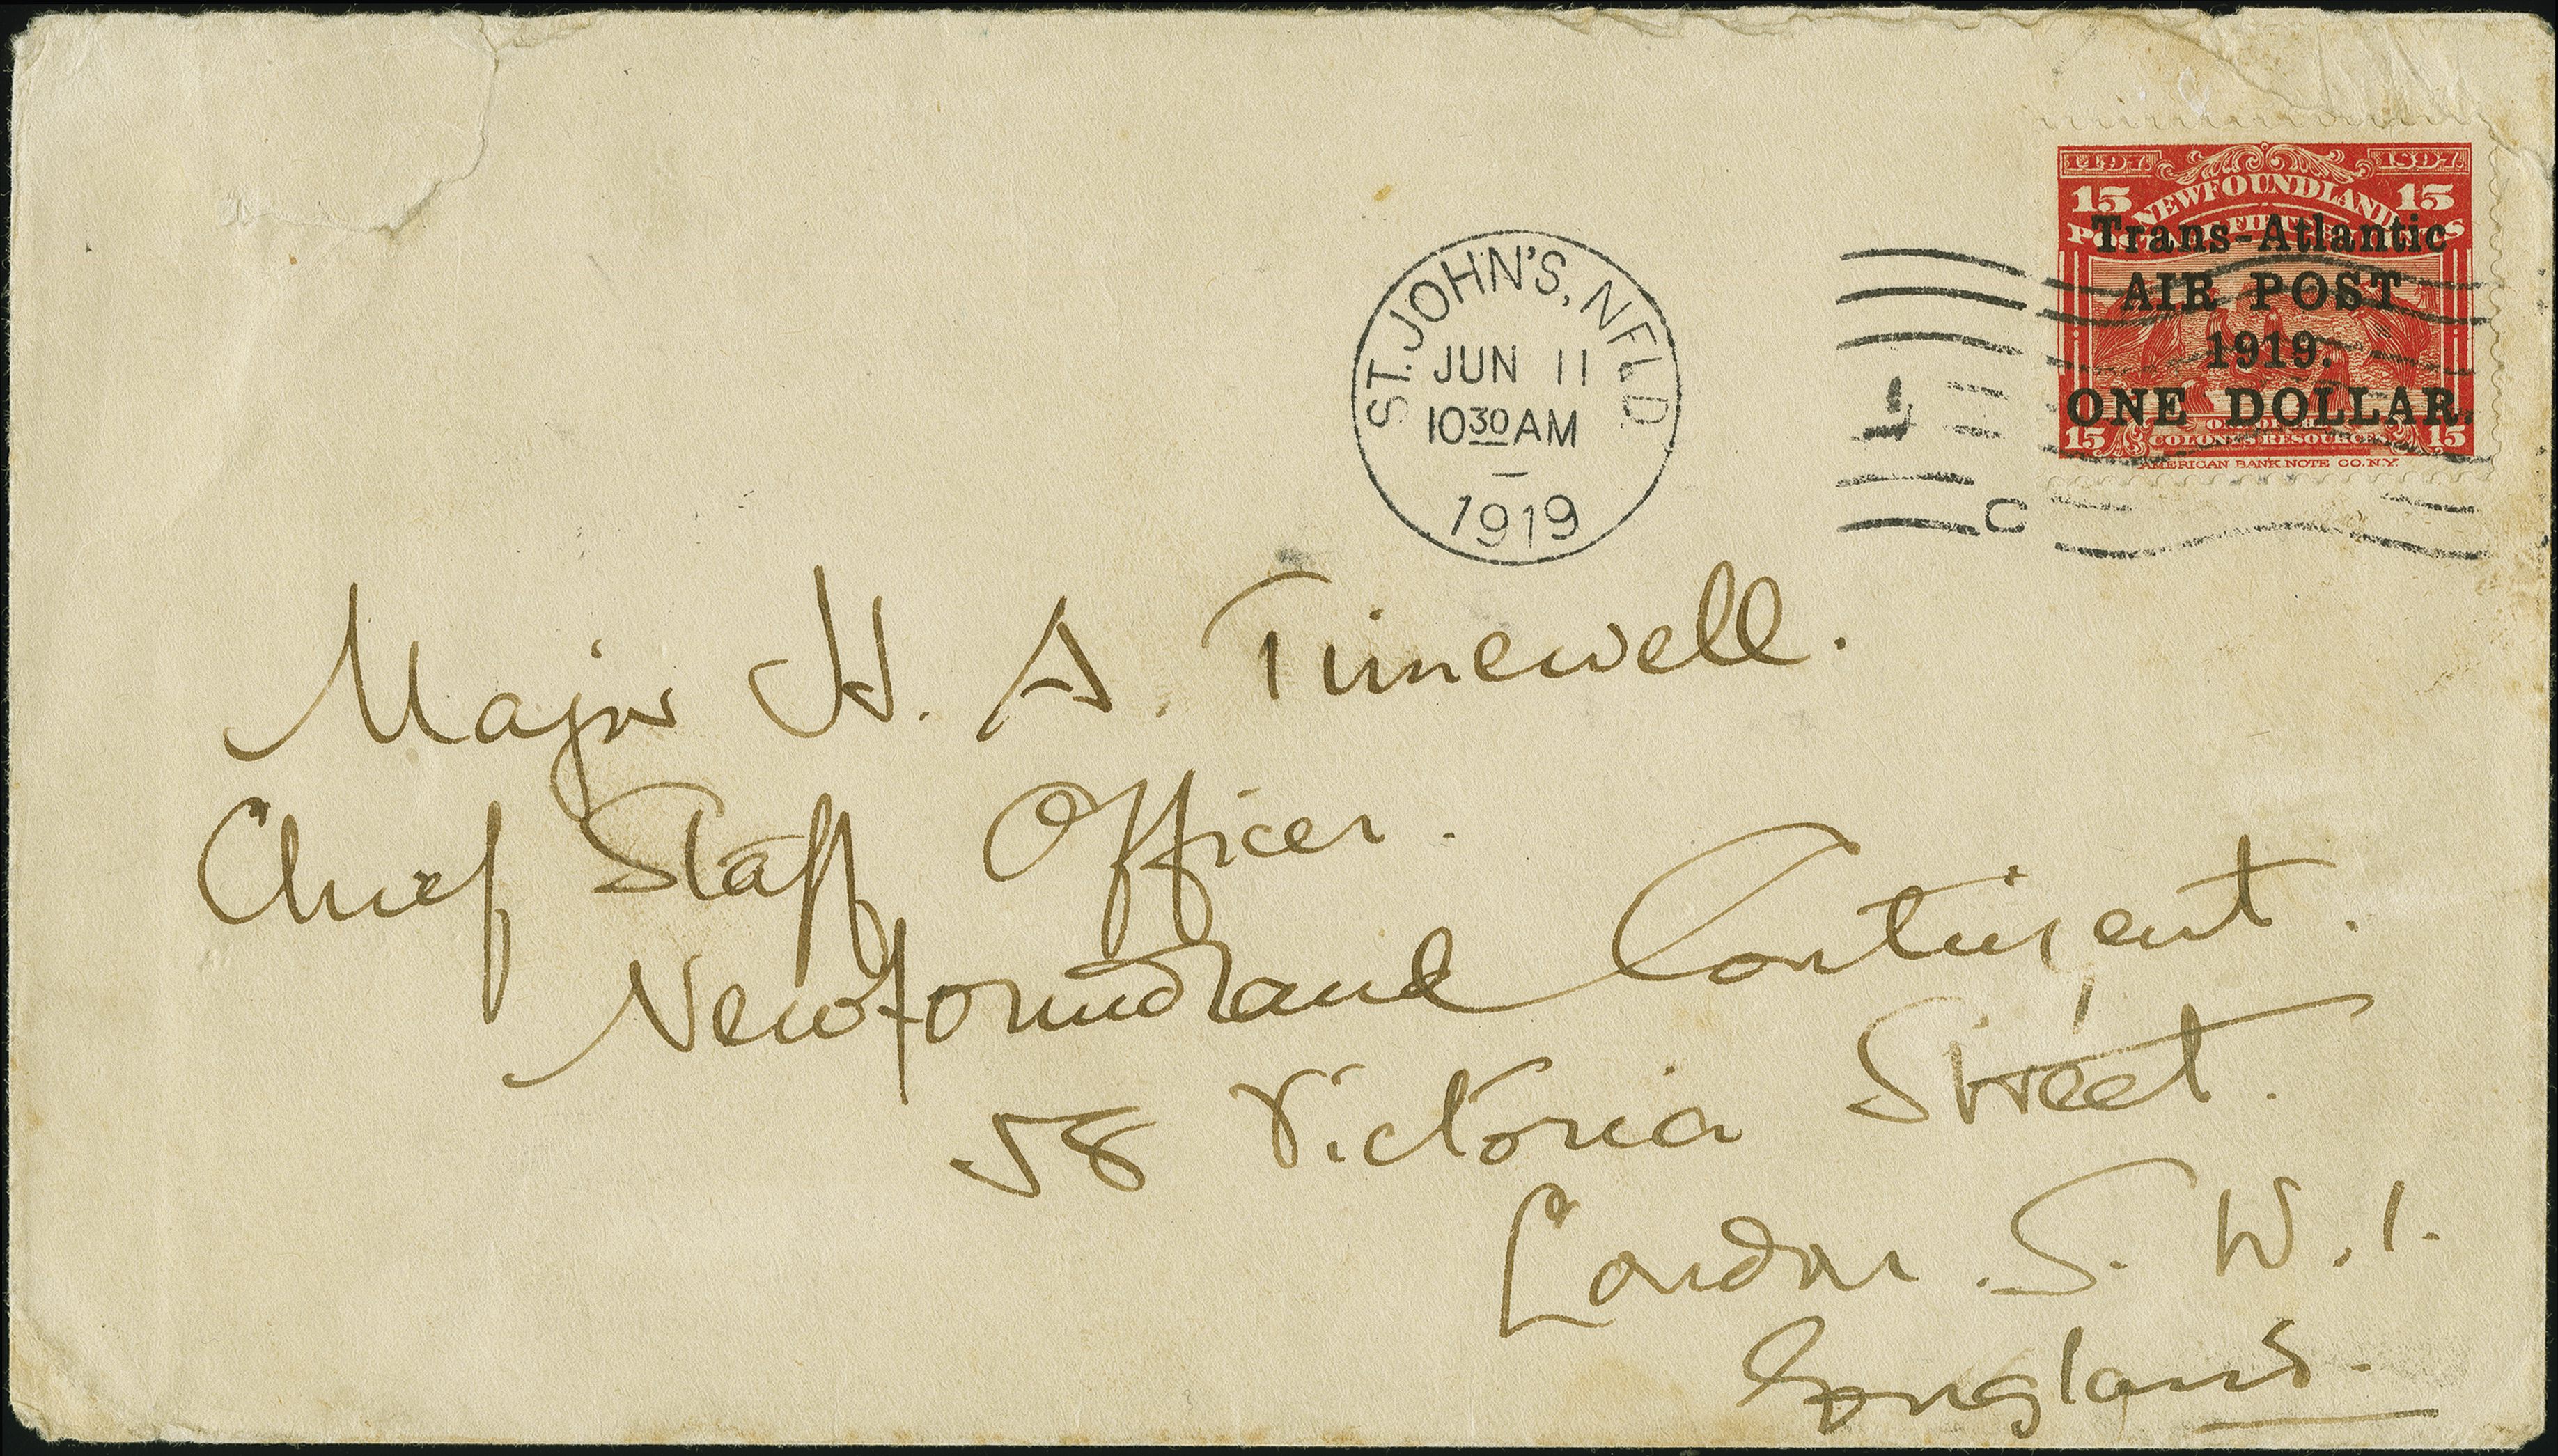 1497 1897
15 NEWFOUNDLAND 15
Trans-Atlantic
AIR POST
1919.
ONE DOLLAR.
15 COLONY'S RESOURCES 15
AMERICAN BANK NOTE CO. N.Y.
ST. JOHN'S, NFLD
JUN 11
10 30 AM
1919
C
Major H. A. Timewell.
Chief Staff Officer.
Newfoundland Contingent.
58 Victoria Street.
London. S. W. 1.
England.